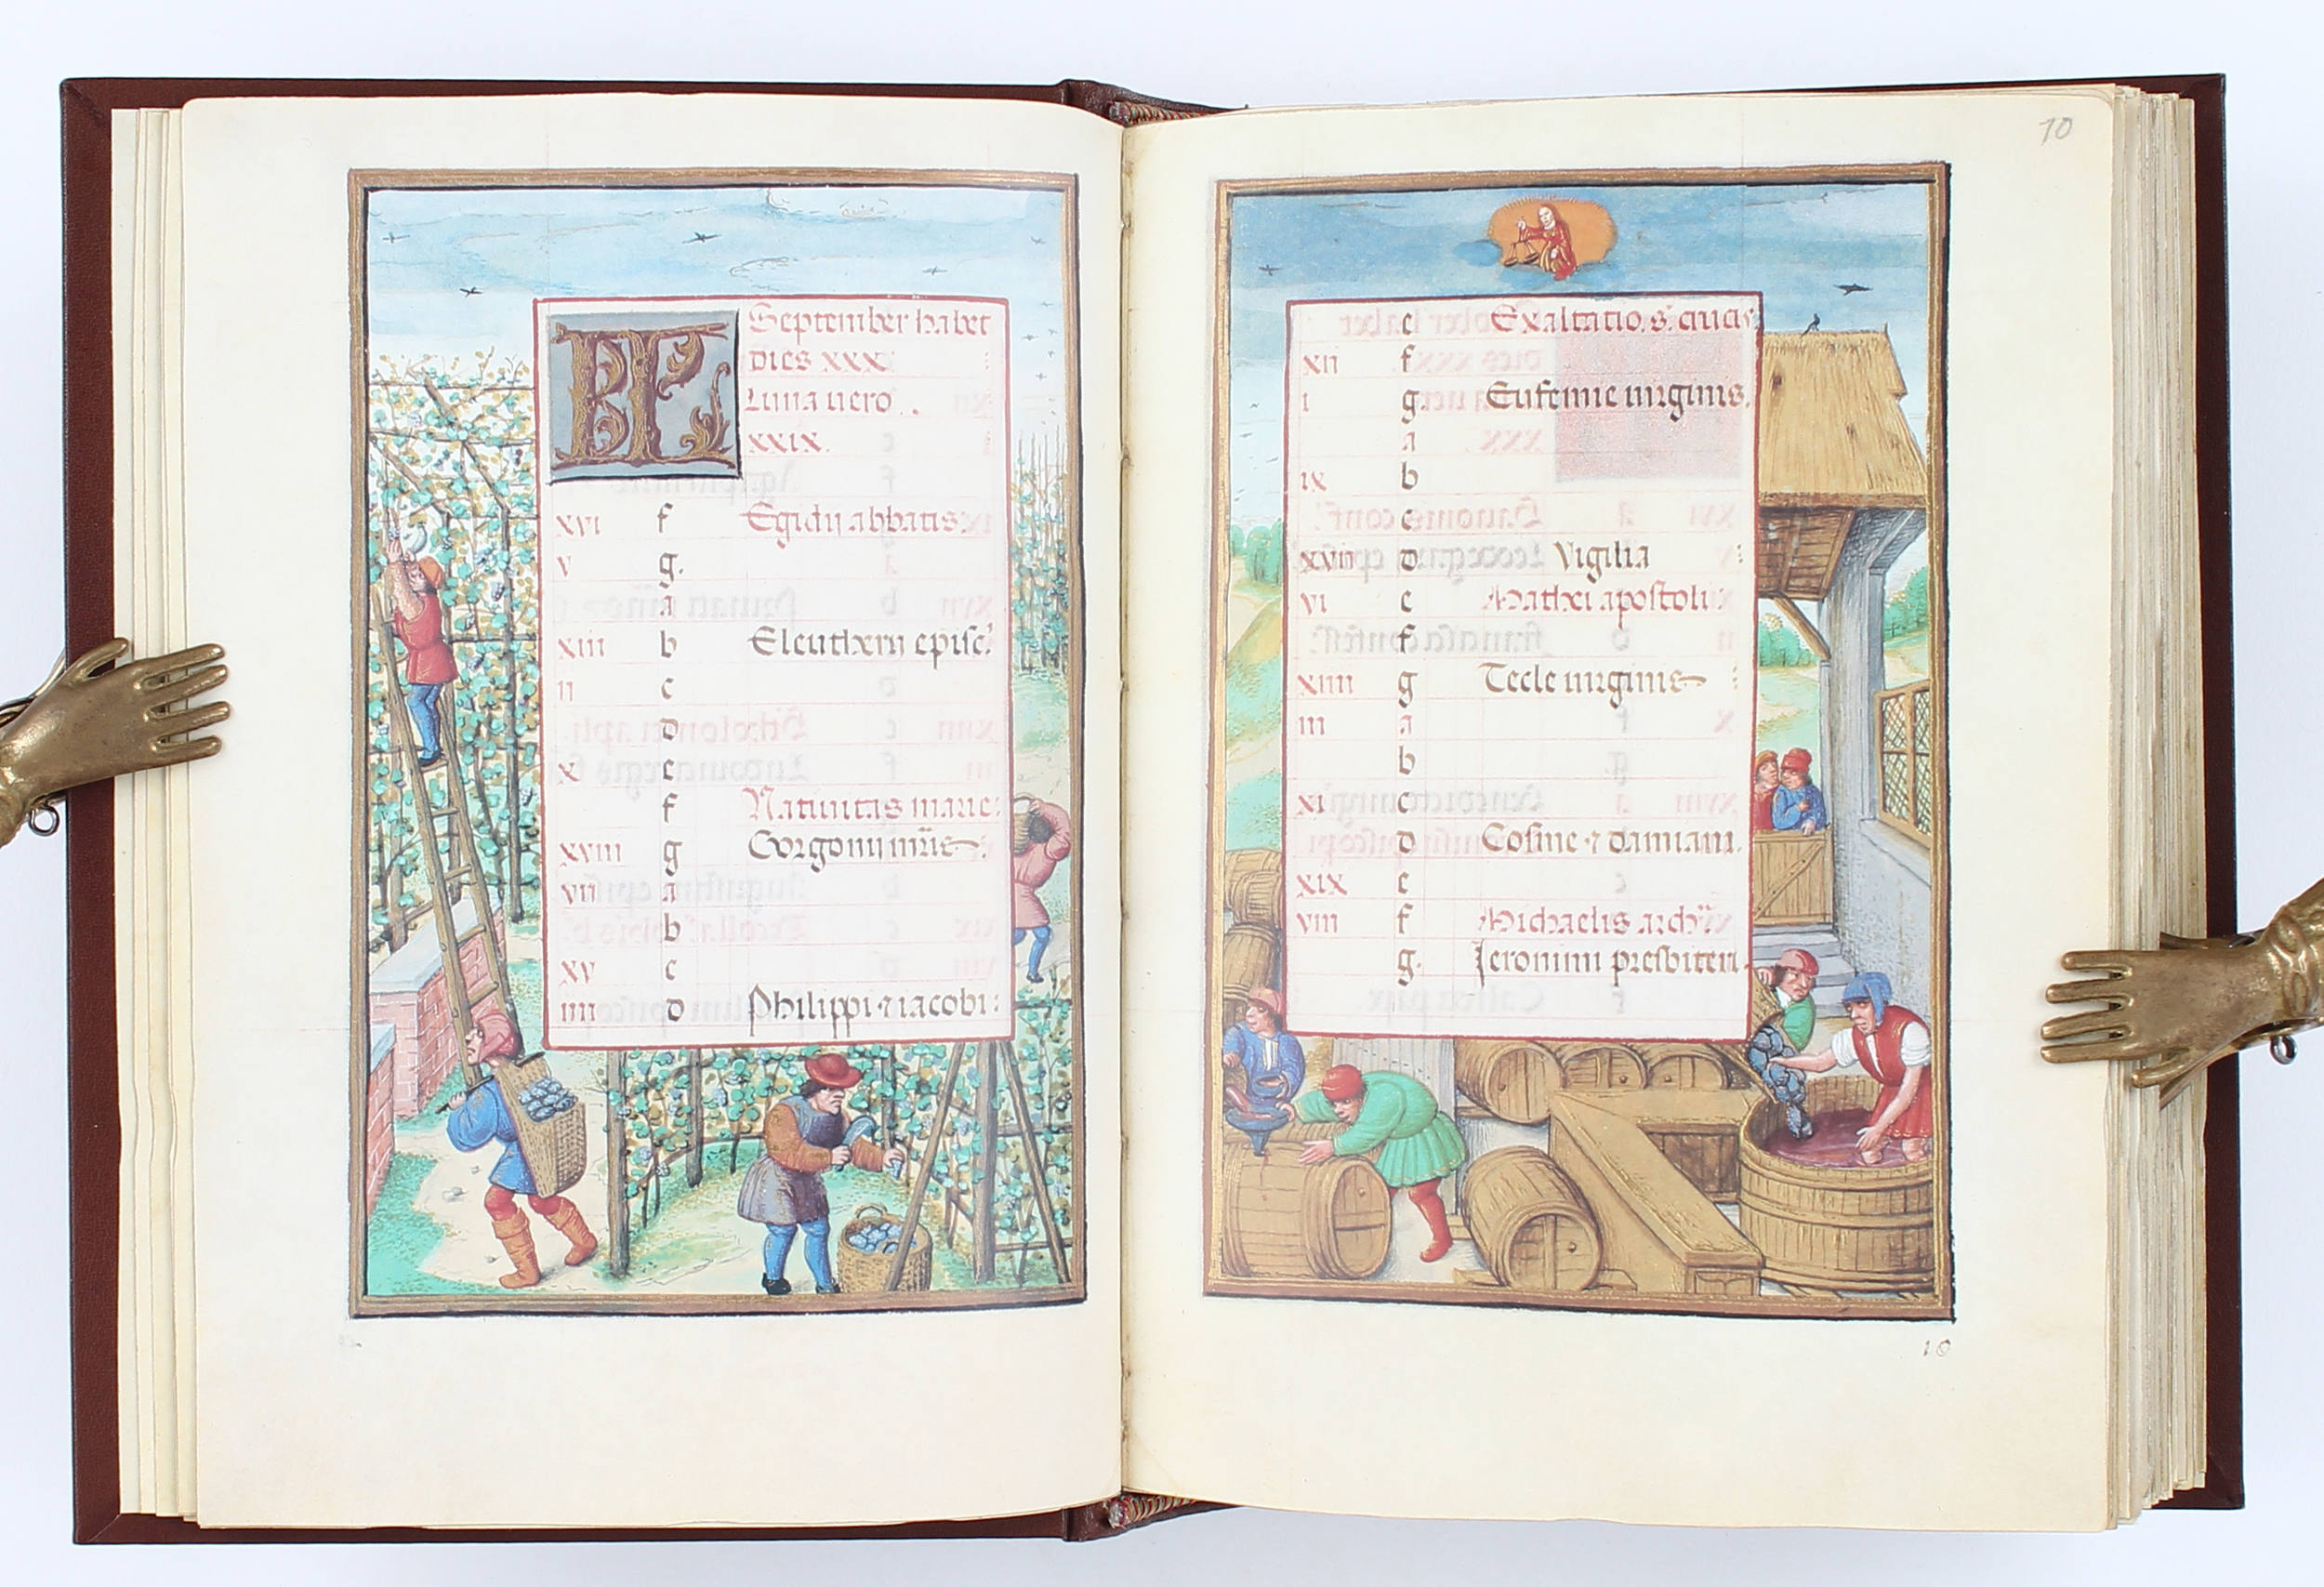 KL September habet
dies xxx
Luna uero.
xxix.
xvi f Egidii abbatis.
v g.
a
xiii b Eleutherii episc'.
ii c
d
x e
f Natiuitas marie:
xviii g Gorgonii mr̄is.
vii a
b
xv c
iiii d Philippi ⁊ iacobi:
10
e Exaltatio. s. crucis
xii f
i g Eufemie uirginis.
a
ix b
c
xvii d Vigilia
vi e Mathei apostoli:
f
xiiii g Tecle uirginis
iii a
b
xi c
d Cosme ⁊ damiani.
xix e
viii f Michaelis arch'
g. Jeronimi presbiteri.
10